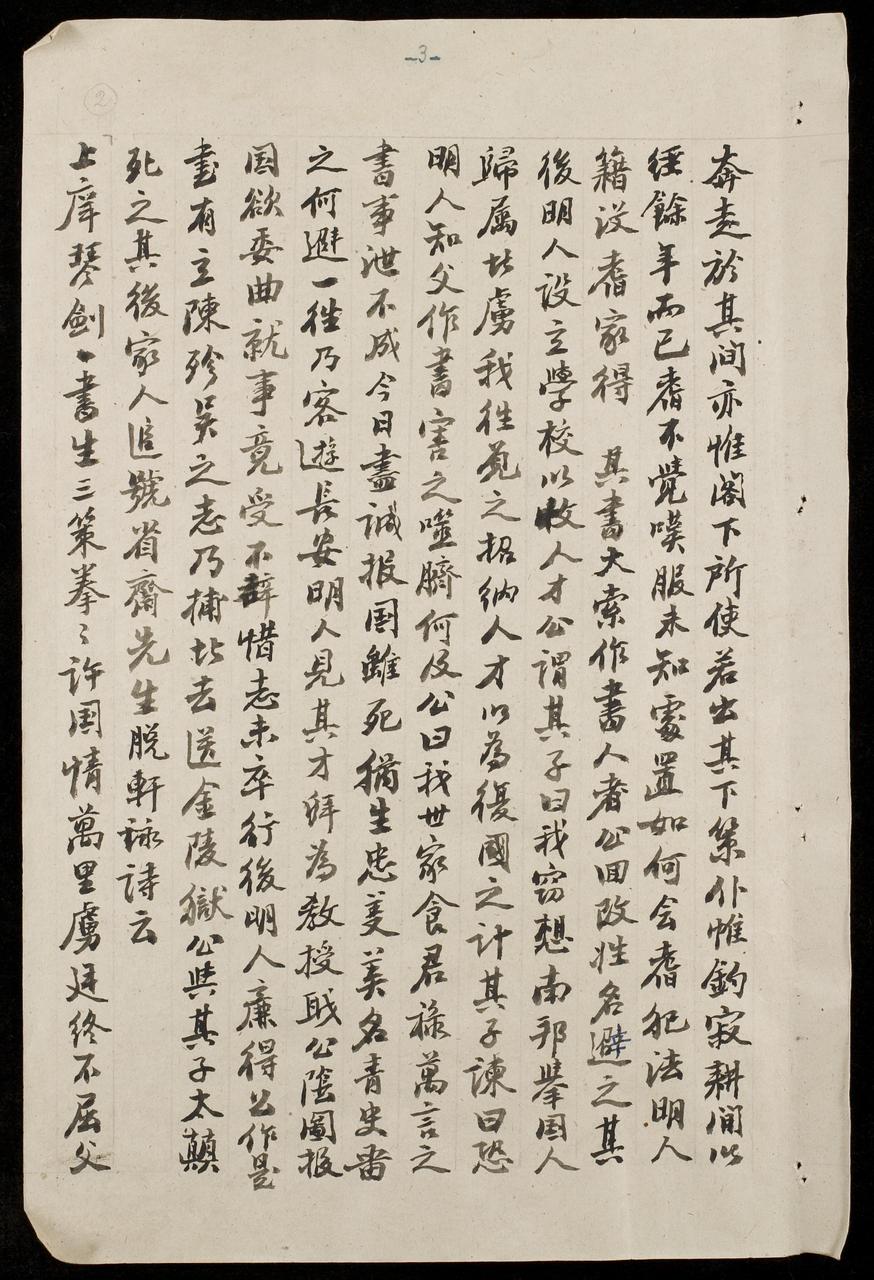 -3-
2
奔走於其间亦惟阁下所使若出其下策仆惟釣寂耕间以
经餘年而已耆不覺嘆服未知處置如何会耆犯法明人
籍没耆家得 其書大索作書人者公囬改姓名避之其
後明人設立學校以收人才公謂其子曰我窃想南邦举国人
歸属北虜我徃苑之招納人才以為復國之计其子諫曰恐
明人知父作書害之噬臍何及公曰我世家食君禄萬言之
書事泄不成今日盡誠报国雖死猶生忠 美名青史留
之何避一徃乃客遊長安明人見其才拜為教授戝公陰圖报
国欲委曲就事竟受不辭惜志未卒行後明人廉得公作是
畫有立陳殄吴之志乃捕北去送金陵獄公與其子太顛
死之其後家人追號省齋先生脱軒詠詩云
上庠琴劍一書生三策拳〻許国情萬里虜廷终不屈父